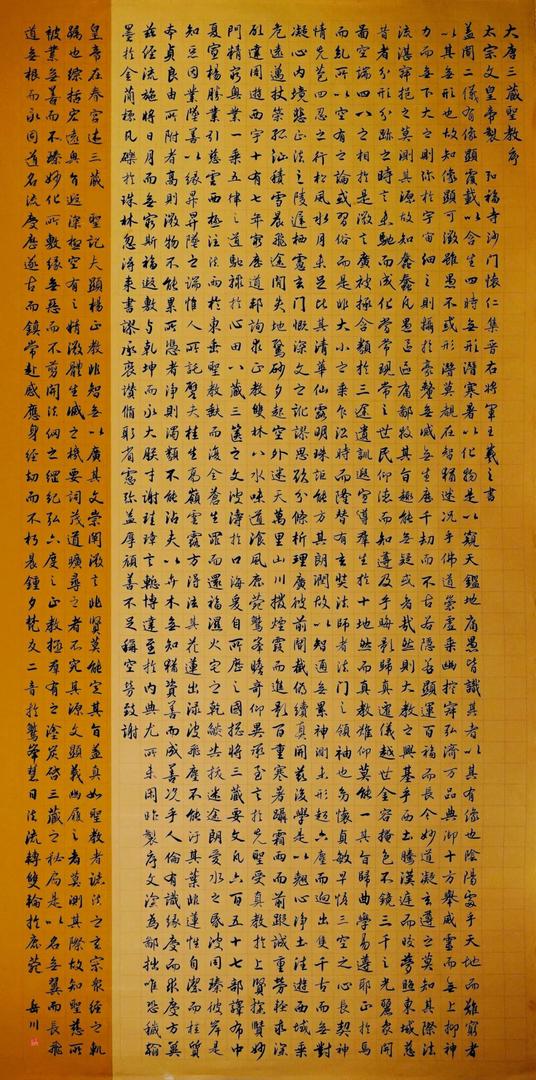 大唐三藏聖教序
太宗文皇帝製 弘福寺沙門懷仁集晉右將軍王羲之書
蓋聞二儀有像顯覆載以含生四時無形潛寒暑以化物是以窺天鑑地庸愚皆識其者以其有像也陰陽處乎天地而難窮者
以其無形也故知像顯可徵雖愚不或形潛莫覩在智猶迷況乎佛道崇虛乘幽控寂弘濟萬品典御十方舉威靈而無上抑神
力而無下大之則弥於宇宙細之則攝於豪釐無滅無生歷千劫而不古若隱若顯運百福而長今妙道凝玄遵之莫知其際法
流湛寂挹之莫測其源故知蠢蠢凡愚區區庸鄙投其旨趣能無疑或者哉然則大教之興基乎西土騰漢庭而皎夢照東域慈
昔者分形分跡之時言未馳而成化當常現常之世民仰德而知遵及乎晦影歸真遷儀越世金容掩色不鏡三千之光麗象開
圖空端四八之相於是微言廣被拯含類於三途遺訓遐宣導群生於十地然而真教難仰莫能一其旨歸曲學易遵耶正於焉
而亂所以空有之論或習俗而是非大小之乘乍沿時而隆替有玄奘法師者法門之領袖也幼懷貞敏早悟三空之心長契神
情先苞四忍之行松風水月未足比其清華仙露明珠詎能方其朗潤故以智通無累神測未形超六塵而迥出隻千古而無對
凝心內境悲正法之陵遲栖慮玄門慨深文之訛謬思欲分條析理廣彼前聞截偽續真開茲後學是以翹心淨土往遊西域乘
危遠邁杖策孤征積雪晨飛途間失地驚砂夕起空外迷天萬里山川撥煙霞而進影百重寒暑躡霜雨而前蹤誠重勞輕求深
願達周遊西宇十有七年窮歷道邦詢求正教雙林八水味道飡風鹿菀鷲峯瞻奇仰異承至言於先聖受真教於上賢探賾妙
門精窮奧業一乘五律之道馳驟於心田八藏三篋之文波濤於口海爰自所歷之國總將三藏要文凡六百五十七部譯布中
夏宣揚勝業引慈雲於西極注法雨於東垂聖教缺而復全蒼生罪而還福濕火宅之乾燄共拔迷途朗愛水之昏波同臻彼岸是
知惡因業墜善以緣昇昇墜之端惟人所託譬夫桂生高嶺零露方得泫其花蓮出淥波飛塵不能汙其葉非蓮性自潔而桂質
本貞良由所附者高則微物不能累所憑者淨則濁類不能沾夫以卉木無知猶資善而成善況乎人倫有識不緣慶而求慶方冀
茲經流施將日月而無窮斯福遐敷與乾坤而永大朕才謝珪璋言慚博達至於內典尤所未閑昨製序文深為鄙拙唯恐穢翰
墨於金簡標瓦礫於珠林忽得來書謬承褒讚循躬省慮弥益厚顏善不足稱空勞致謝
皇帝在春宮述三藏 聖記夫顯揚正教非智無以廣其文崇闡微言非賢莫能定其旨蓋真如聖教者諸法之玄宗眾經之軌
躅也綜括宏遠奧旨遐深極空有之精微體生滅之機要詞茂道曠尋之者不究其源文顯義幽履之者莫測其際故知聖慈所
被業無善而不臻妙化所敷緣無惡而不剪開法網之綱紀弘六度之正教拯群有之塗炭啟三藏之秘扃是以名無翼而長飛
道無根而永固道名流慶歷遂古而鎮常赴感應身經劫而不朽晨鍾夕梵交二音於鷲峯慧日法流轉雙輪於鹿菀 岳川